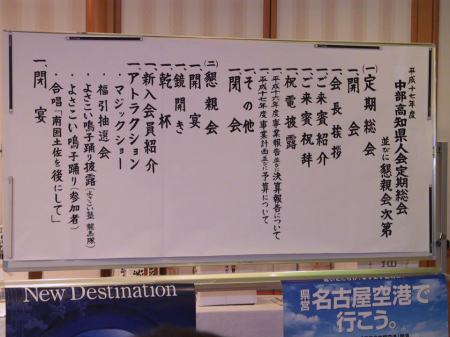 平成十七年度
中部高知県人会定期総会
並びに懇親会次第
(一)定期総会
一、開会
一、会長挨拶
一、ご来賓紹介
一、ご来賓祝辞
一、祝電披露
平成十六年度事業報告並びに決算報告について
平成十七年度事業計画並びに予算について
一、その他
一、閉会
(二)懇親会
一、開宴
一、鏡開き
一、乾杯
一、新入会員紹介
一、アトラクション
・マジックショー
・福引抽選会
・よさこい鳴子踊り披露(よさこい塾 龍馬隊)
・よさこい鳴子踊り(参加者)
・合唱「南国土佐を後にして」
一、閉宴
New Destination
県営
名古屋空港で
行こう。